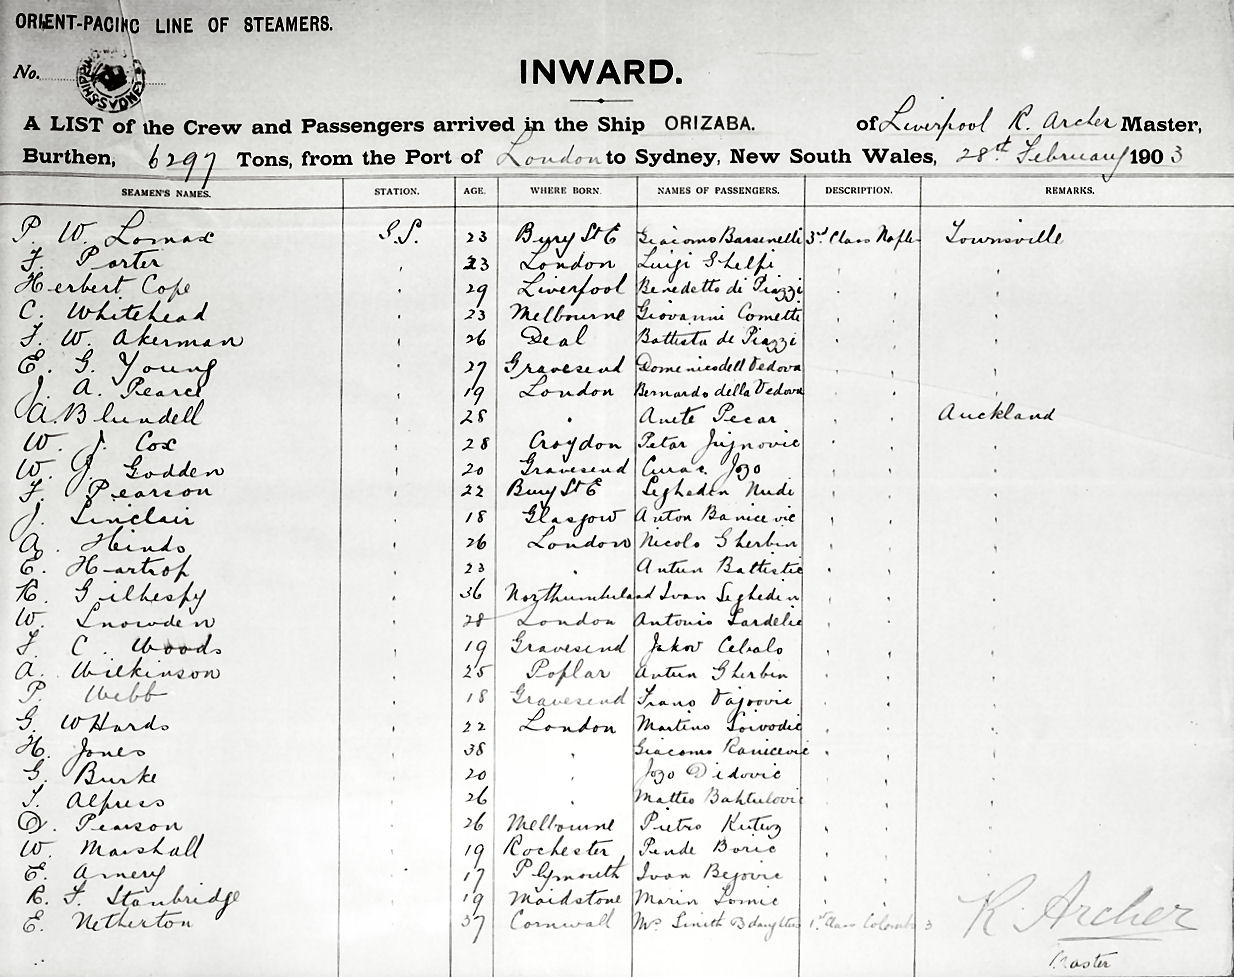 ORIENT-PACIFIC LINE OF STEAMERS.
No.
INWARD.
A LIST of the Crew and Passengers arrived in the Ship ORIZABA. of Liverpool R. Archer Master,
Burthen, 6297 Tons, from the Port of London to Sydney, New South Wales, 28th February 1903
SEAMEN'S NAMES. STATION. AGE. WHERE BORN. NAMES OF PASSENGERS. DESCRIPTION. REMARKS.
P. W. Lomax S.S. 23 Bury St E Giacomo Barsenelli 3rd Class Naples Townsville
F. Porter " 23 London Luigi Ghelfi " " "
Herbert Cope " 29 Liverpool Benedetto di Piazzi " " "
C. Whitehead " 23 Melbourne Giovanni Cometti " " "
F. W. Akerman " 26 Deal Battista de Piazzi " " "
E. G. Young " 27 Gravesend Domenico dell Vedova " " "
J. A. Pearce " 19 London Bernardo della Vedova " " "
A. Blundell " 28 " Anete Pecar " " Auckland
W. J. Cox " 28 Croydon Petar " " "
W. J. Godden " 20 Gravesend Curac Jozo " " "
F. Pearson " 22 Bury St E Seghedin Nude " " "
J. Sinclair " 18 Glasgow Anton Banicevic " " "
A. Hinds " 26 London Nicolo Gherbin " " "
E. Hartrop " 23 " Antun Battistic " " "
R. Gilhespy " 36 Northumberland Ivan Seghedin " " "
W. Snowden " 28 London Antonio Sardelic " " "
F. C. Woods " 19 Gravesend Jakov Cebalo " " "
A. Wilkinson " 25 Poplar Antun Gherbin " " "
P. Webb " 18 Gravesend Frano " " "
G. W Hards " 22 London Martino " " "
H. Jones " 38 " Giacomo Ranicevic " " "
G. Burke " 20 " Jozo Didovic " " "
S. Alpress " 26 " Matteo " " "
D. Pearson " 26 Melbourne Pietro " " "
W. Marshall " 19 Rochester Pende Boric " " "
E. Amery " 17 Plymouth Ivan Begovic " " "
R. F. Stanbridge " 19 Maidstone Marin Tomic " "
E. Netherton " 37 Cornwall Mrs Smith & daughter 1st Class Colombo 3
R. Archer
Master